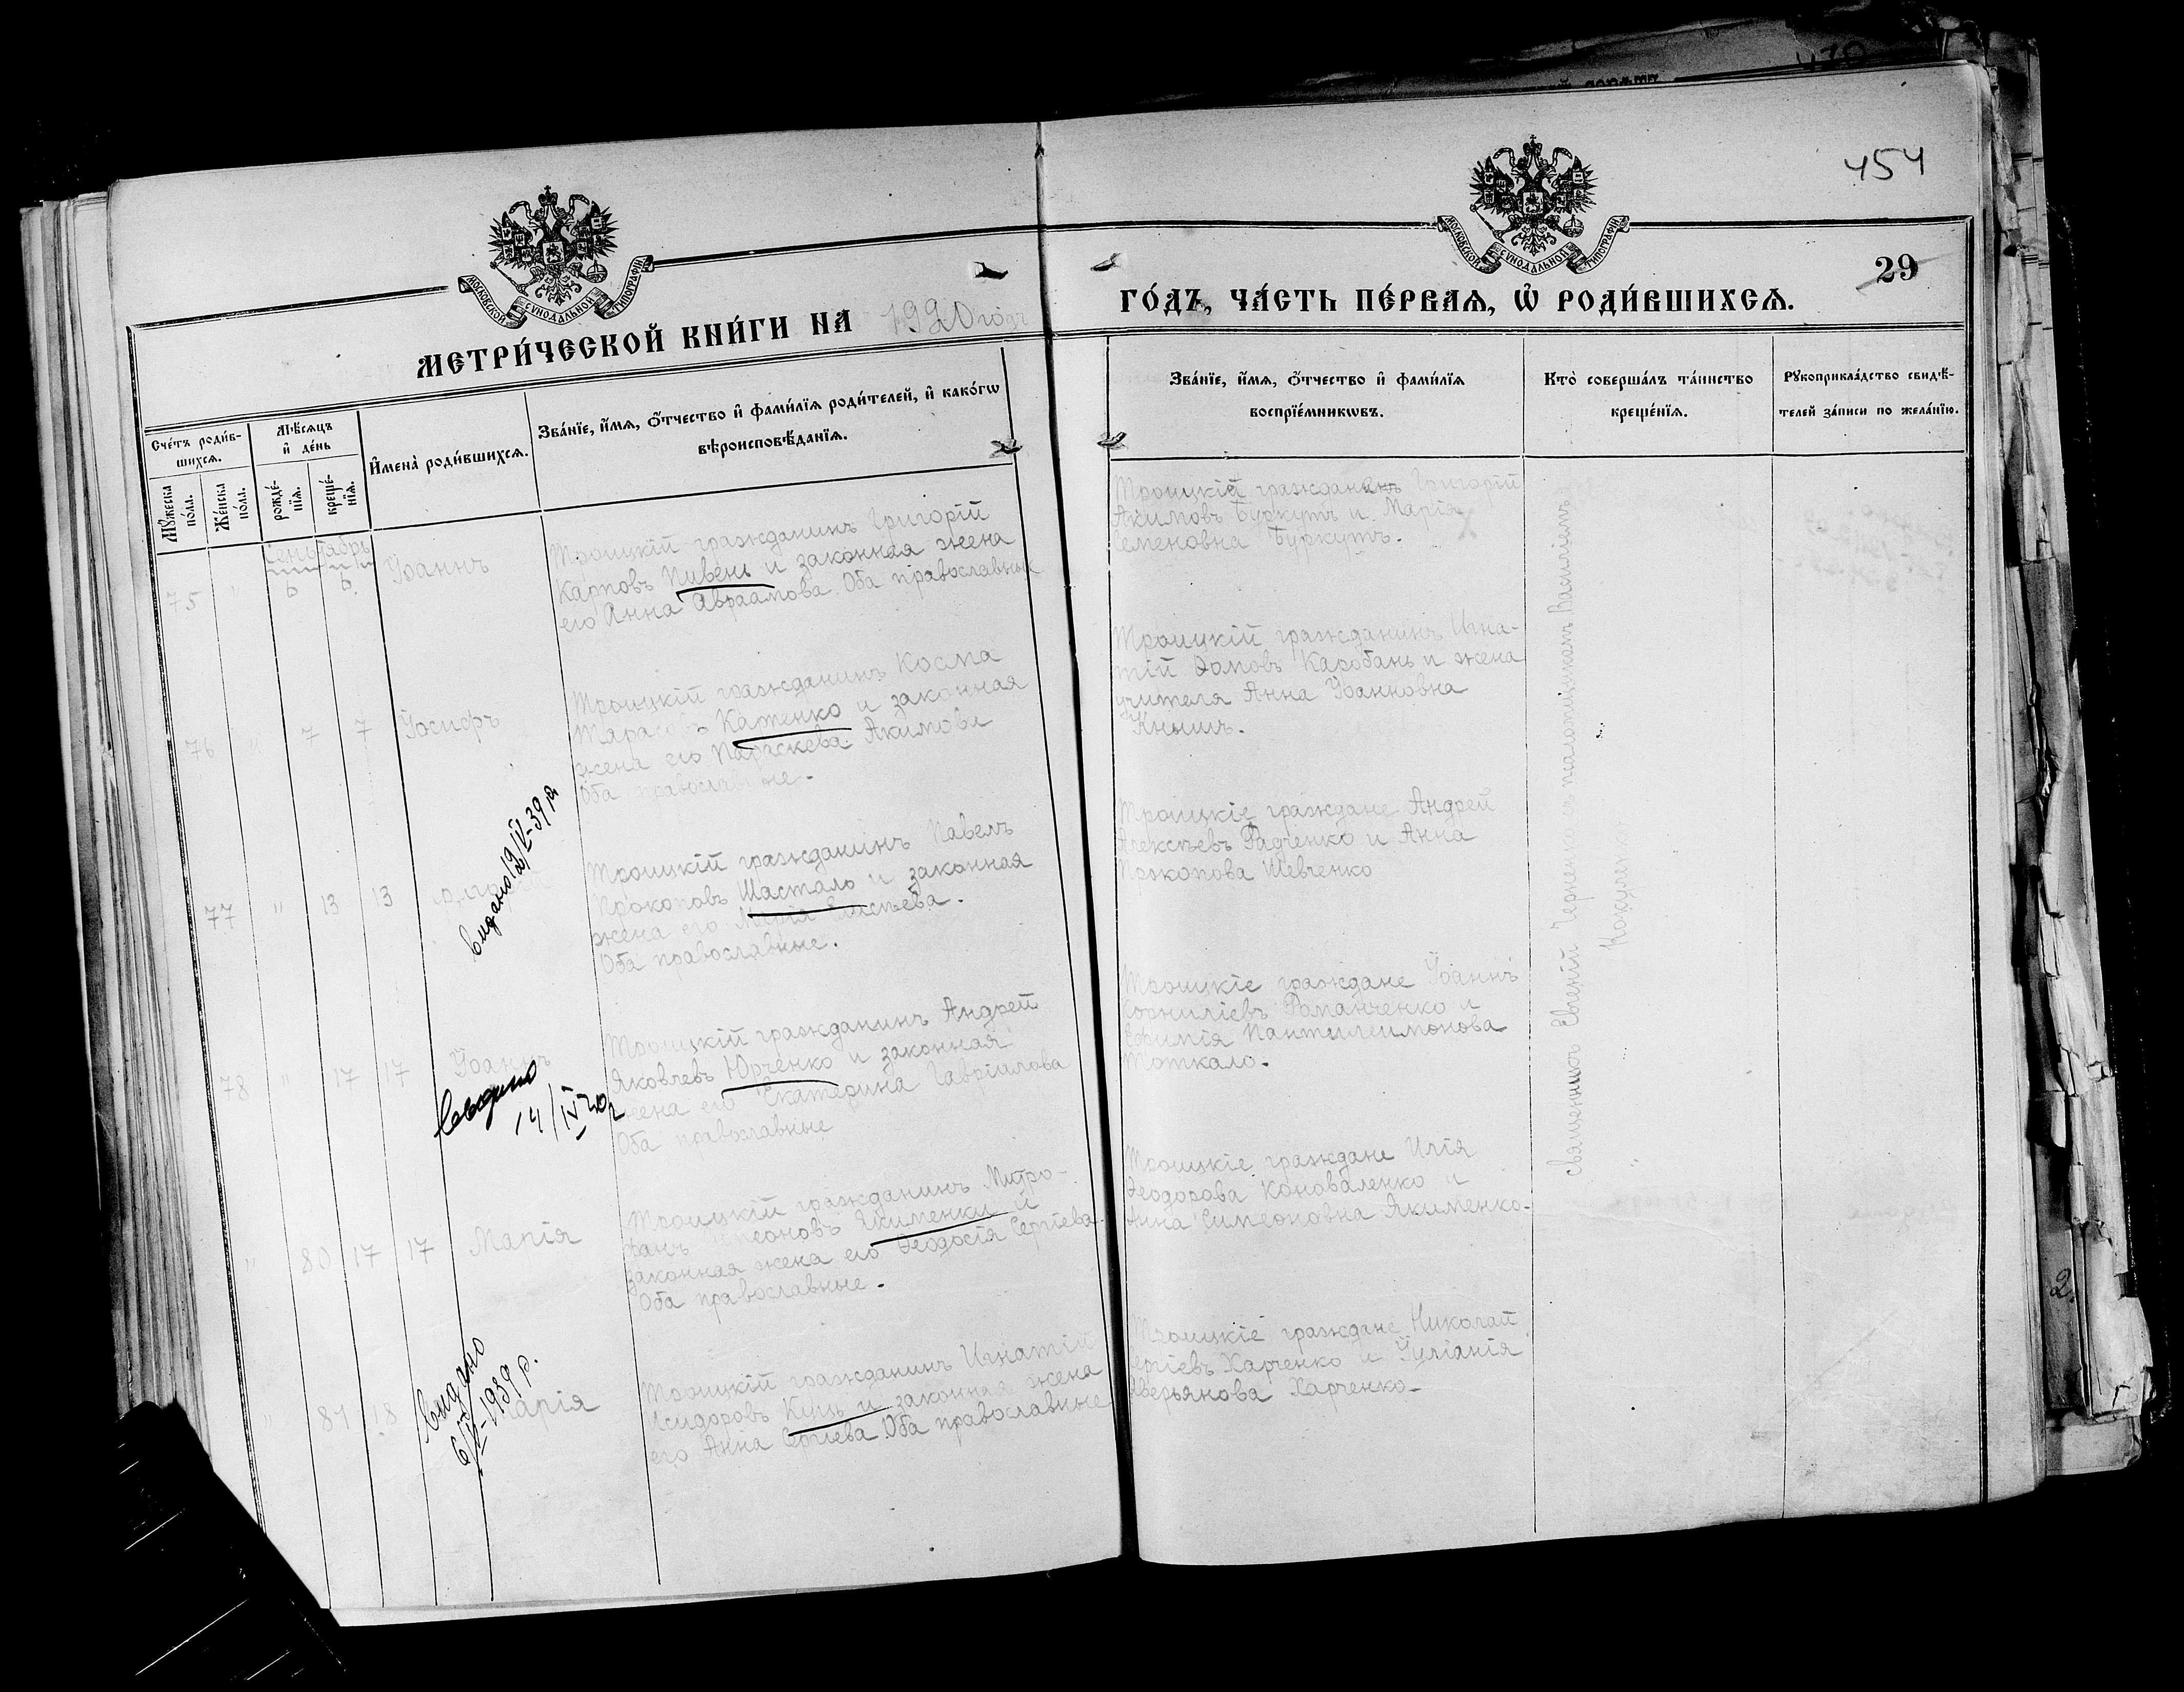 454
29
МОСКОВСКОЙ СѴНОДАЛЬНОЙ ТИПОГРАФІИ
МОСКОВСКОЙ СѴНОДАЛЬНОЙ ТИПОГРАФІИ
МЕТРИ́ЧЕСКОЙ КНИ́ГИ НА 1920 годъ
ГО́ДЪ, ЧА́СТЬ ПЕ́РВАЯ, Ѡ҆ РОДИ́ВШИХСЯ.
Сче́тъ роди́в-
шихся.
Мꙋ́жеска
по́ла.
Же́нска
по́ла.
Мѣ́сяцъ
и҆ де́нь
рожде́-
нїя.
креще́-
нїя.
И҆мена̀ роди́вшихся.
Зва́нїе, и҆́мя, ѻ҆́тчество и҆ фами́лїя роди́телей, и҆ како́гѡ
вѣроисповѣ́данїя.
Зва́нїе, и҆́мя, ѻ҆́тчество и҆ фами́лїя
воспрїе́мникѡвъ.
Кто̀ соверша́лъ та́инство
креще́нїя.
Рꙋкоприкла́дство свидѣ́-
телей за́писи по жела́нїю.
Сентябрь
75 " 6 6. Іоаннъ
Троицкій гражданинъ Григорій
Карповъ Пивень и законная жена
его Анна Авраамова. Оба православные
Троицкій гражданинъ Григорій
Акимовъ Буркутъ и Марія
Семеновна Буркутъ.
76 " 7 7 Іосифъ
Троицкій гражданинъ Косма
Тарасовъ Катенко и законная
жена его Параскева Акимова
Оба православные.
Троицкій гражданинъ Игна-
тій Фомовъ Каробань и жена
учителя Анна Іоанновна
Кнышъ.
77 " 13 13
Видано 19/IV-39 р.
Троицкій гражданинъ Павелъ
Прокоповъ Шастало и законная
жена его Марія Елисѣева.
Оба православные.
Троицкіе граждане Андрей
Алексѣевъ Радченко и Анна
Прокопова Шевченко
78 " 17 17 Іоаннъ
14/IV 40 р
Троицкій гражданинъ Андрей
Яковлевъ Юрченко и законная
жена его Екатерина Гавріилова
Оба православные
Троицкіе граждане Іоаннъ
Корниліевъ Романченко и
Ефимія Пантелеимонова
Тоткало.
" 80 17 17 Марія
Троицкій гражданинъ Митро-
фанъ Симеоновъ Якименко и
законная жена его Феодосія Сергіева.
Оба православные.
Троицкіе граждане Илія
Феодорова Коноваленко и
Анна Симеоновна Якименко.
" 81 18 Марія
Видано
6/VI-1939 р.
Троицкій гражданинъ Игнатій
Исидоровъ Куць и законная жена
его Анна Сергіева. Оба православные
Троицкіе граждане Николай
Сергіевъ Харченко и Іуліанія
Аверьянова Харченко.
Священникъ Евгеній Черненко съ псаломщикомъ Василіемъ